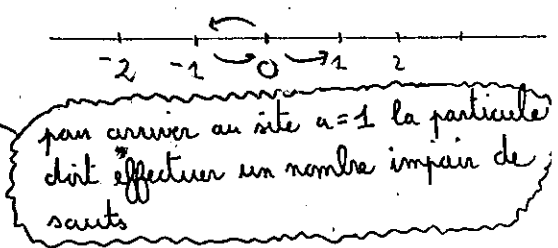 -2 -1 0 1 2
pour arriver au site a=1 la particule
doit effectuer un nombre impair de
sauts